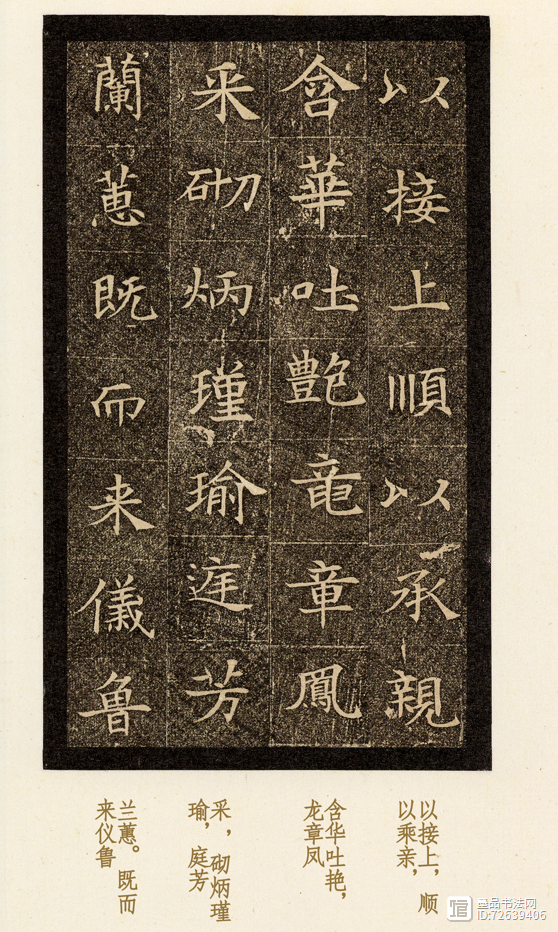 以接上順以承親
含華吐艷竜章鳳
采砌炳瑾瑜庭芳
蘭蕙既而来儀魯
以接上，顺
以乘亲，
含华吐艳，
龙章凤
采，砌炳瑾
瑜，庭芳
兰蕙。既而
来仪鲁
品书法网
ID:72639406